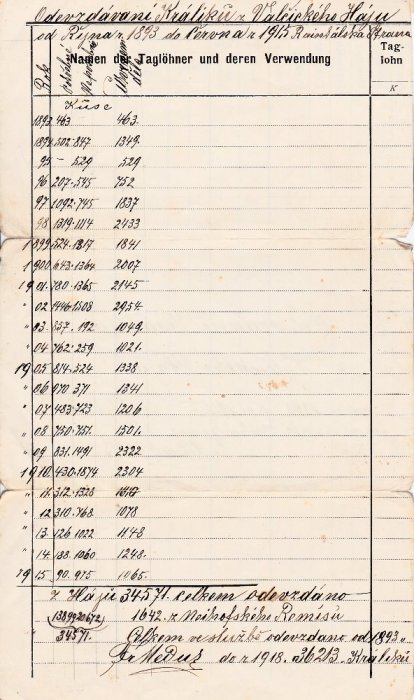 Odevzdávaní Králiků z Valčického Háju
od Října r 1893 do Června r 1915
Rok
Namen der Taglöhner und deren Verwendung
Tag-
lohn
K
Kusě
1893 463 463.
1894 502 847 1349.
95 - 529 529
96 207 545 752
97 1092 745 1837
98 1319 1114 2433
1899 524 1317 1841
1900 643 1364 2007
1901 780 1365 2145
" 02 1446 1508 2954
" 03 857 192 1049
" 04 762 259 1021
1905 814 524 1338
" 06 970 371 1341
" 07 483 723 1206
" 08 750 751 1501
" 09 831 1491 2322
1910 430 1874 2304
" 11 312 1328
" 12 310 768 1078
" 13 126 1022 1148
" 14 188 1060 1248
1915 90 975 1065
z Háje 34571 celkem odevzdáno
13899 20672 1642 z Neihofského Remisů
34571. Celkem ve službě odevzdano od 1893
do r 1918. 36213. Králiků